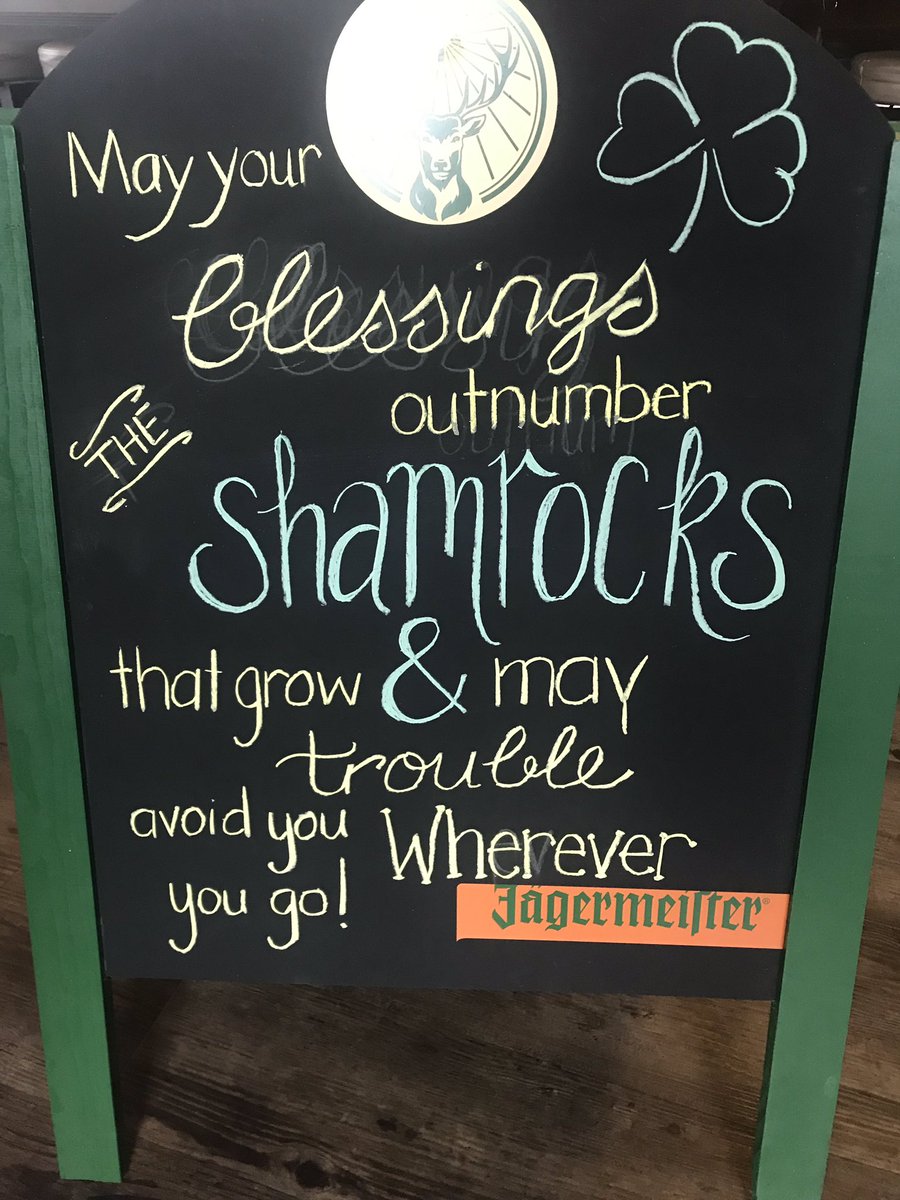 May your
blessings
outnumber
THE
shamrocks
that grow & may
trouble
avoid you Wherever
you go!
Jägermeiſter®